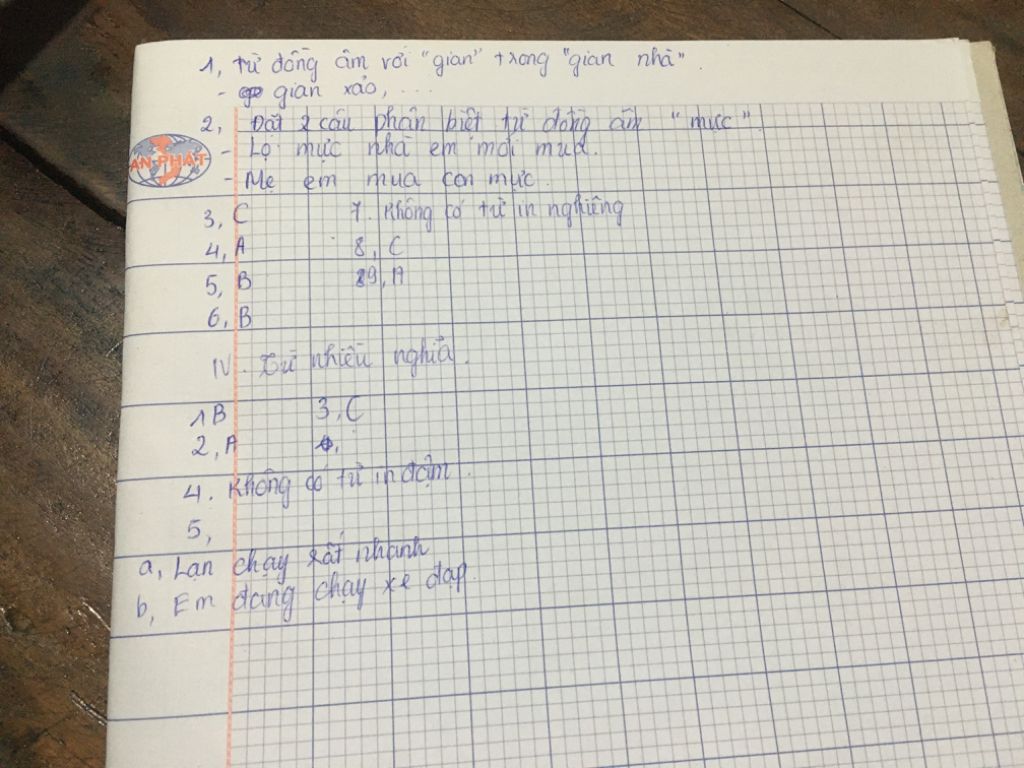 1, từ đồng âm với "gian" trong "gian nhà".
- gian xảo, ...
2, Đặt 2 câu phân biệt từ đồng âm "mực".
AN PHÁT
- Lọ mực nhà em mới mua.
- Mẹ em mua con mực.
3, C 7. Không có từ in nghiêng
4, A 8, C
5, B 9, A
6, B
IV. Từ nhiều nghĩa.
1 B 3, C
2, A
4. Không có từ in đậm.
5,
a, Lan chạy rất nhanh
b, Em đang chạy xe đạp.